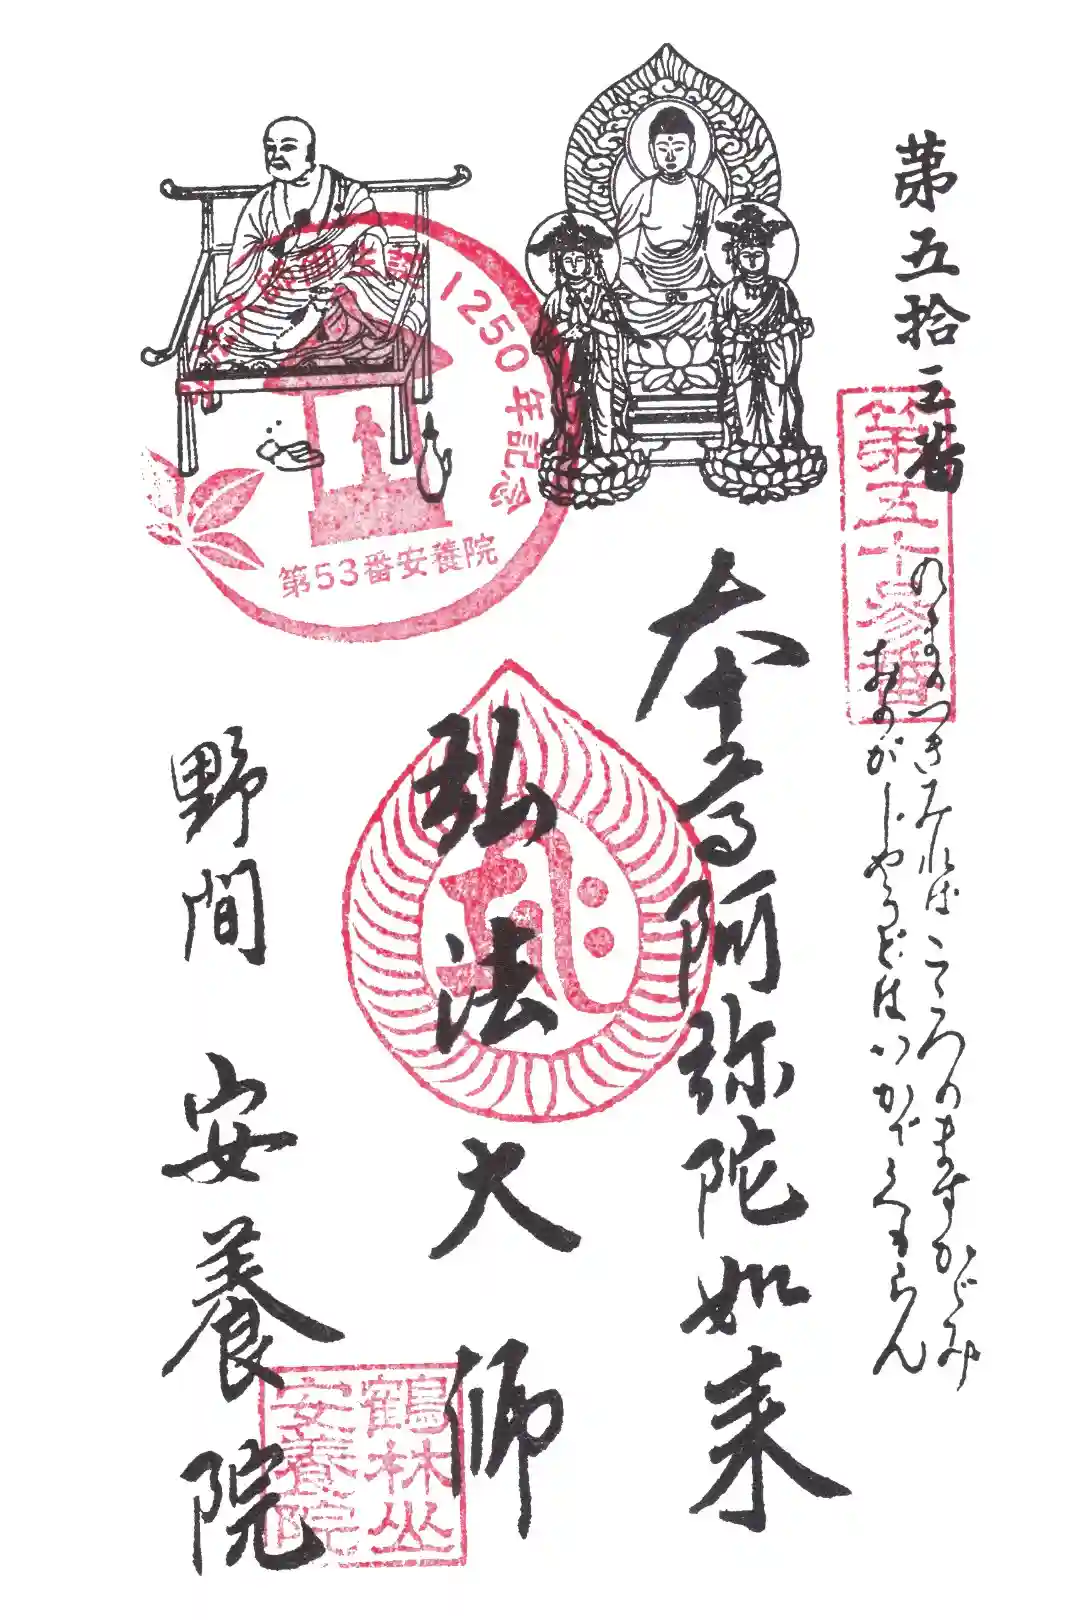 第五拾三番
第五十参番
のまのつきみればこころのますかがみ
おのがじやうどはいかでくもらん
本尊阿弥陀如来
弘法大師
野間
安養院
弘法大師御生誕1250年記念
第53番安養院
鶴林山
安養院